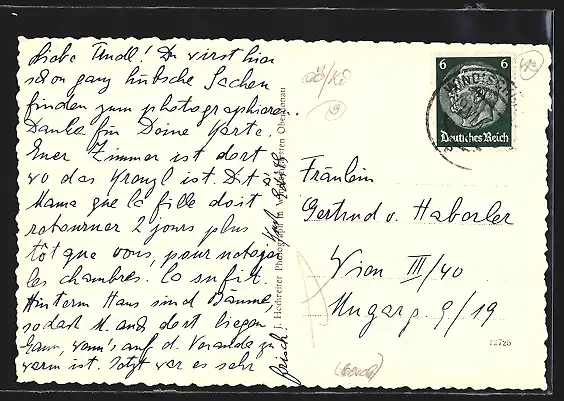 Liebe Trudl! Du wirst hier
schon ganz hübsche Sachen
finden zum photographieren.
Danke für Deine Karte.
Euer Zimmer ist dort
wo das Kreuzl ist. Dit à
Mama que la fille doit
retourner 2 jours plus
tôt que vous, pour
les chambres. Ca suffit.
Hinterm Haus sind Bäume
sodaß M. auch dort liegen
kann, wenn's auf d. Veranda zu
warm ist. Jetzt war es sehr
frisch!
J. Hochreiter Photograph in Windischgarsten Oberdonau
6 6
Deutsches Reich
Fräulein
Gertrud v. Haberler
Wien III/40
Ungarg. 9/19
12725